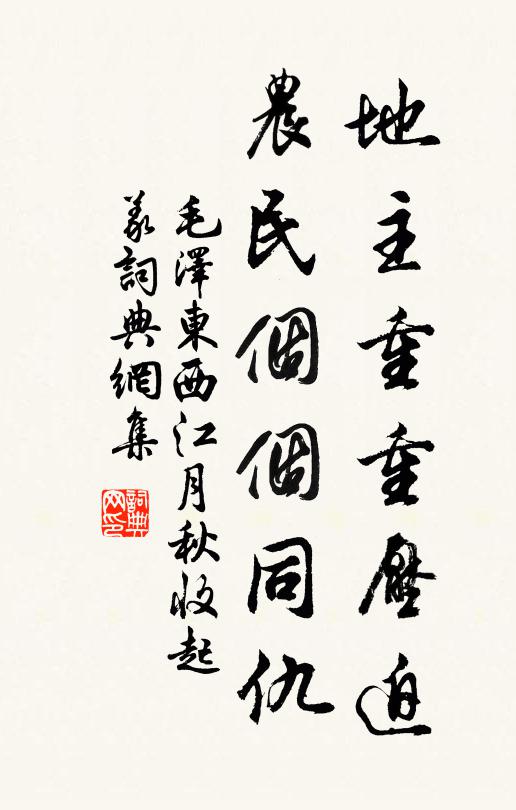 地主重重壓迫
農民個個同仇
毛澤東西江月秋收起
義詞典網集
詞典
网印